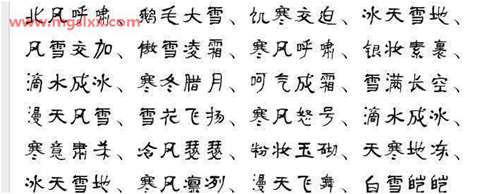 www.mgalxx.com
北风呼啸、鹅毛大雪、饥寒交迫、冰天雪地、
风雪交加、傲雪凌霜、寒风呼啸、银妆素裹、
滴水成冰、寒冬腊月、呵气成霜、雪满长空、
漫天风雪、雪花飞扬、寒风怒号、滴水成冰、
寒意肃杀、冷风瑟瑟、粉妆玉砌、天寒地冻、
冰天雪地、寒风凛冽、漫天飞舞、白雪皑皑